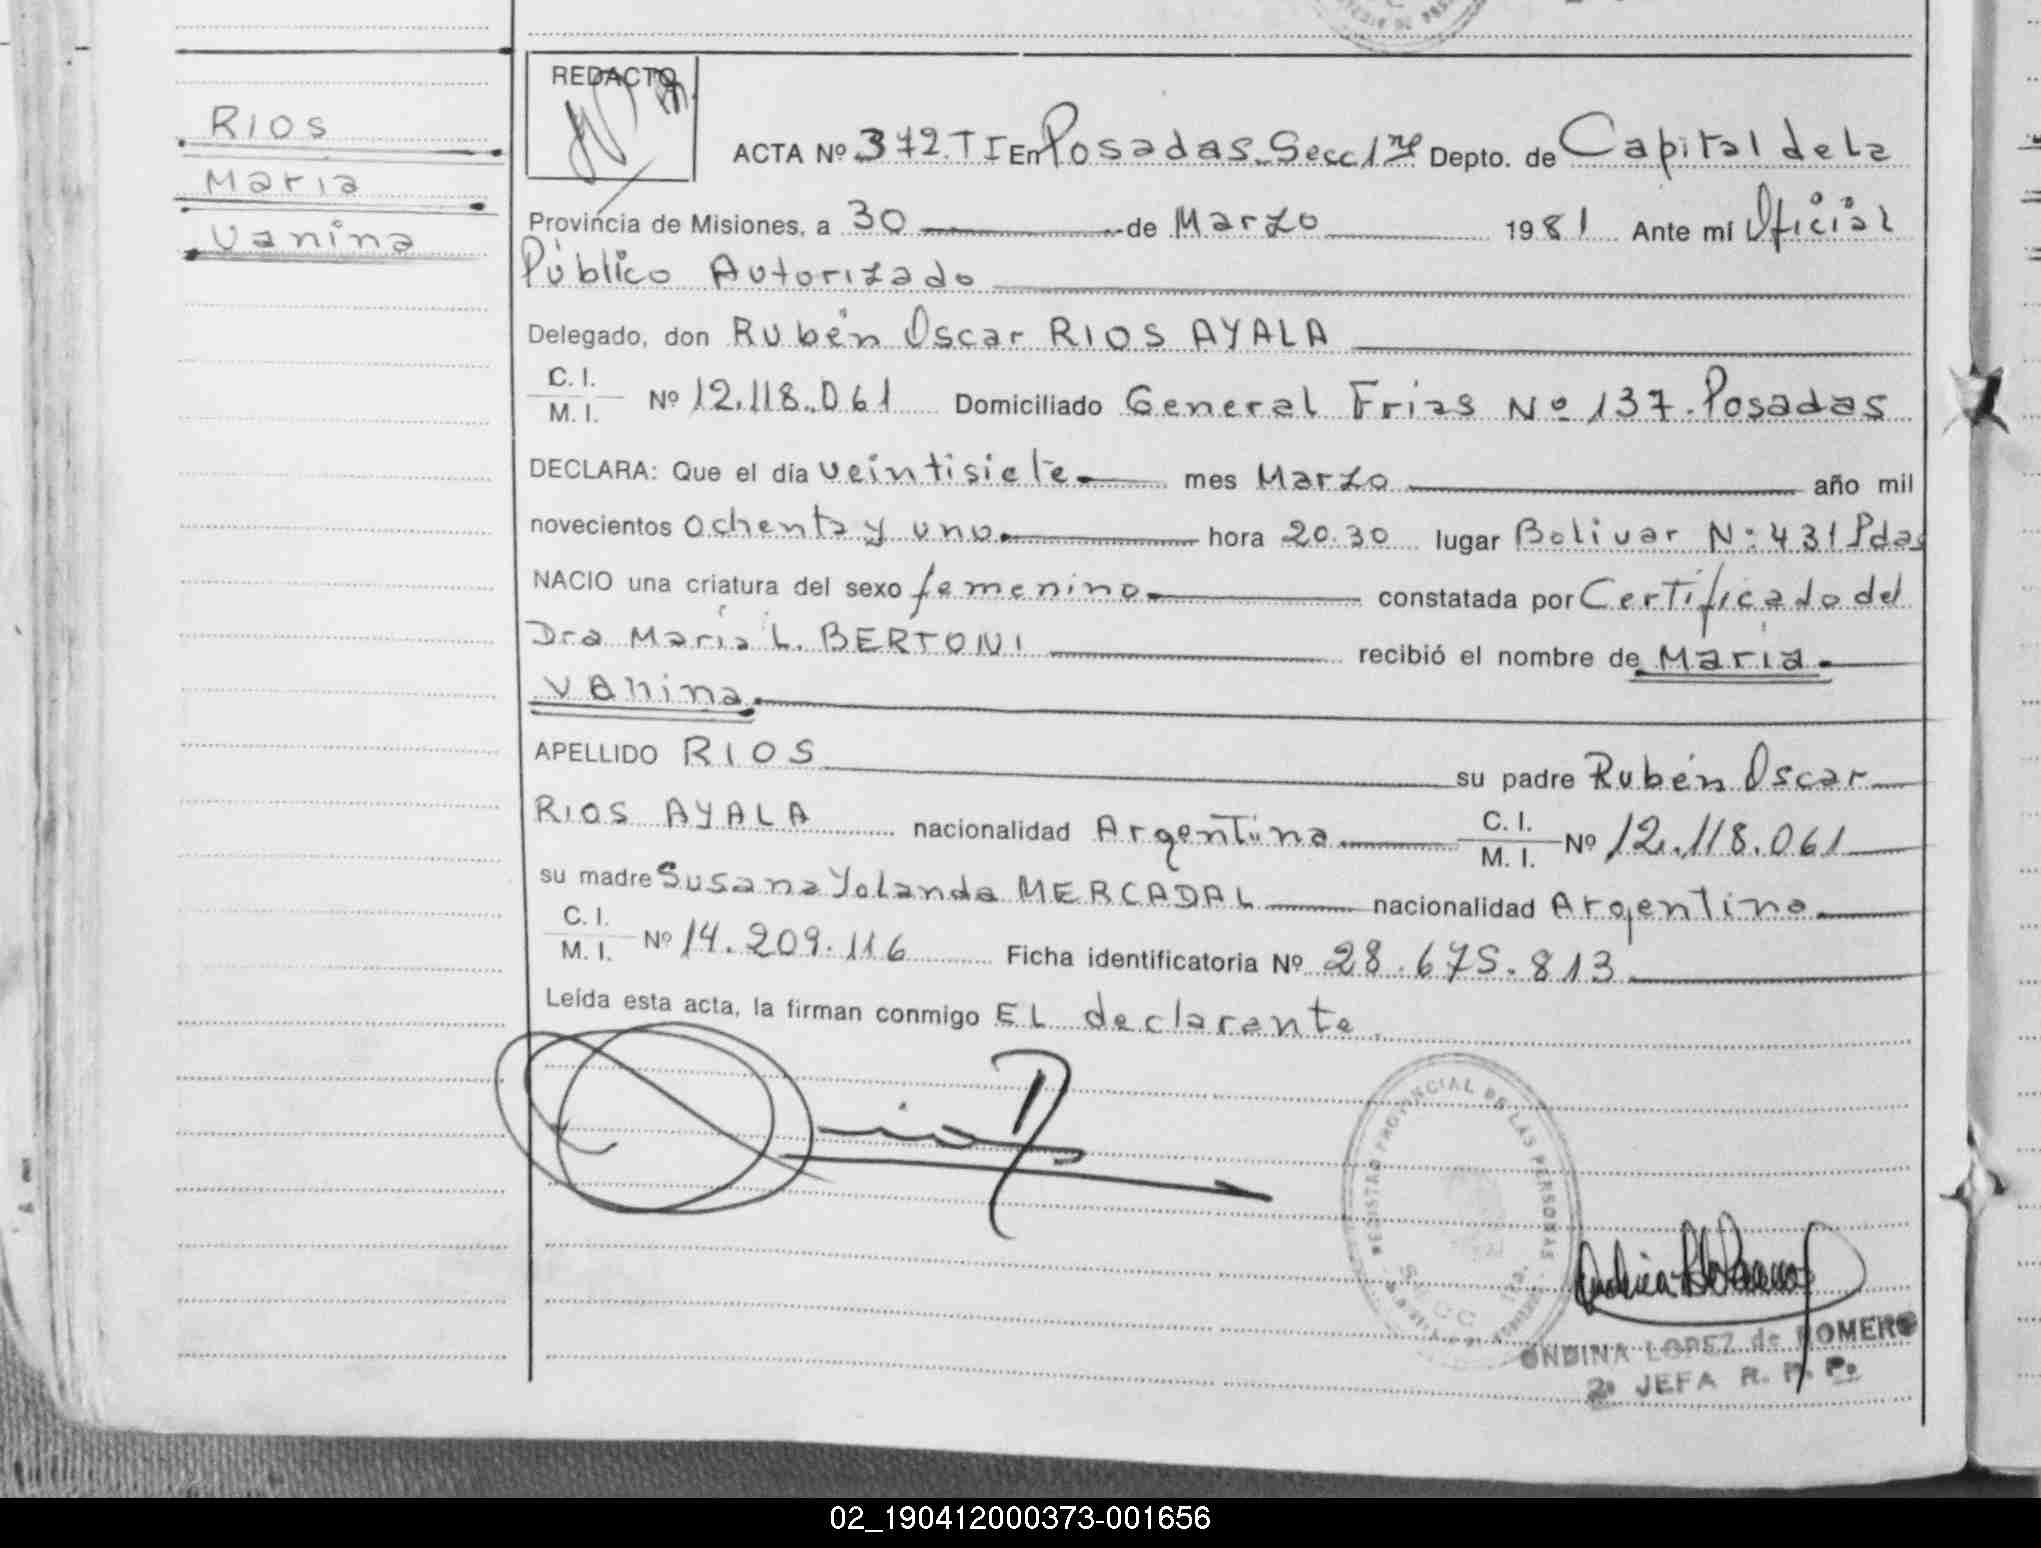 RIOS
Maria
Vanina
REDACTO
ACTA Nº 372.TI En Posadas. Secc 1ra Depto. de Capital de la
Provincia de Misiones, a 30 de Marzo 1981 Ante mí Oficial
Público Autorizado
Delegado, don Rubén Oscar RIOS AYALA
C. I.
M. I. Nº 12.118.061 Domiciliado General Frias Nº 137. Posadas
DECLARA: Que el día veintisiete mes Marzo año mil
novecientos ochenta y uno hora 20.30 lugar Bolivar N: 431 Pdas
NACIO una criatura del sexo femenino constatada por Certificado del
Dra María L. BERTONI recibió el nombre de María
Vanina
APELLIDO RIOS su padre Rubén Oscar
RIOS AYALA nacionalidad Argentina C. I.
M. I. Nº 12.118.061
su madre Susana Yolanda MERCADAL nacionalidad Argentina
C. I.
M. I. Nº 14.209.116 Ficha identificatoria Nº 28.675.813
Leída esta acta, la firman conmigo EL declarante.
REGISTRO PROVINCIAL DE LAS PERSONAS
SECC 1ra.
ONDINA LOPEZ de ROMERO
2ª JEFA R. P. P.
02_190412000373-001656